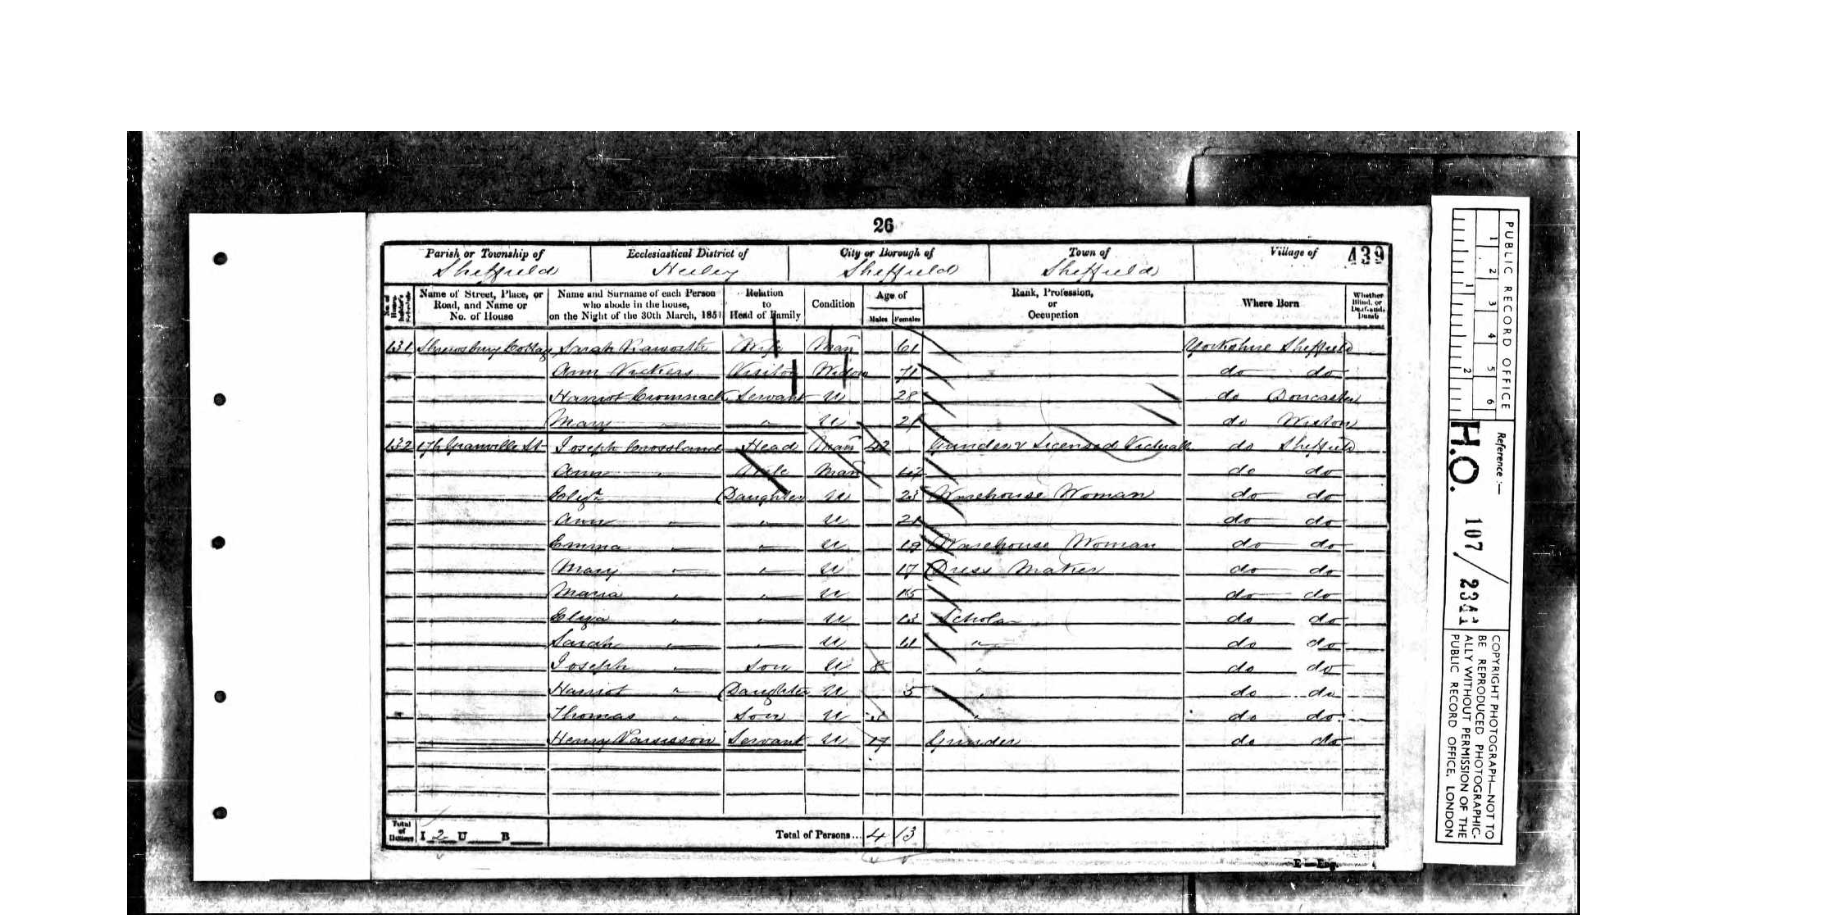 26
Parish or Township of Ecclesiastical District of City or Borough of Town of Village of 439
Sheffield Heeley Sheffield Sheffield
Name of Street, Place, or Road, and Name or No. of House
Name and Surname of each Person who abode in the house, on the Night of the 30th March, 1851
Relation to Head of Family
Condition
Age of
Males Females
Rank, Profession, or Occupation
Where Born
Whether Blind, or Deaf-and-Dumb
131 Shrewsbury Cottage Sarah Wife Mar 61 Yorkshire Sheffield
Ann Vickers Visitor Widow 71 do do
Harriot Servant U 28 do Doncaster
Mary " U 21 do
132 Granville St Joseph Crossland Head Mar 42 Grinder & Licensed Victualler do Sheffield
Ann " Wife Mar 42 do do
Elizth " Daughter U 23 Warehouse Woman do do
Ann " " U 21 do do
Emma " " U 19 Warehouse Woman do do
Mary " " U 17 Dress Maker do do
Maria " " U 15 do do
Eliza " " U 13 Scholar do do
Sarah " " U 11 " do do
Joseph " Son U 8 " do do
Harriot " Daughter U 5 " do do
Thomas " Son U " do do
Henry Servant U 17 Grinder do do
Total of Houses I 2 U B Total of Persons... 4 13
E—Eng.
PUBLIC RECORD OFFICE
1 2 3 4 5 6
1 2
Reference:—
H.O. 107/
COPYRIGHT PHOTOGRAPH—NOT TO
BE REPRODUCED PHOTOGRAPHIC-
ALLY WITHOUT PERMISSION OF THE
PUBLIC RECORD OFFICE, LONDON